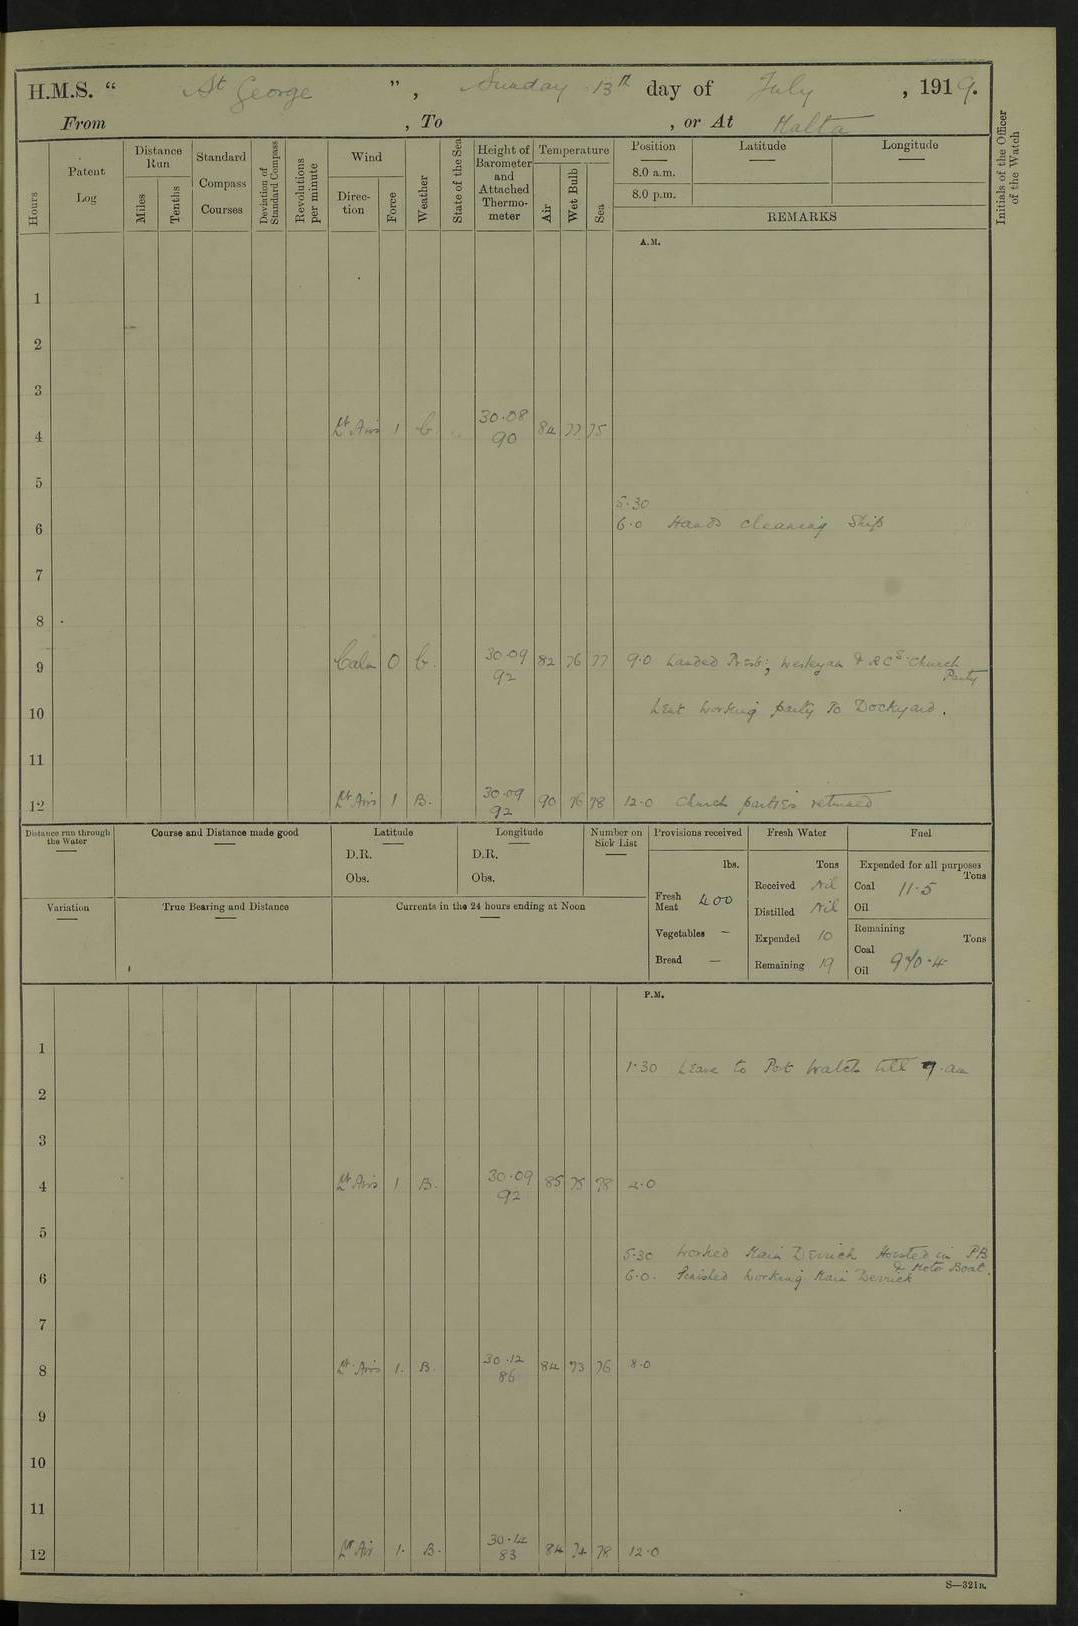 H.M.S. “ St George ” , Sunday 13th day of July , 1919.
From , To , or At Malta
Hours
Patent Log
Distance Run
Miles
Tenths
Standard Compass Courses
Deviation of Standard Compass
Revolutions per minute
Wind
Direction
Force
Weather
State of the Sea
Height of Barometer and Attached Thermometer
Temperature
Air
Wet Bulb
Sea
Position
8.0 a.m.
8.0 p.m.
Latitude
Longitude
REMARKS
Initials of the Officer of the Watch
A.M.
1
2
3
4 Lt Airs 1 b. 30.08 90 84 77 75
5
5.30
6 6.0 Hands cleaning Ship
7
8
9 Calm 0 b. 30.09 92 82 76 77 9.0 Landed Presb:, Wesleyan & RCs Church Party
10 Lent working party to Dockyard.
11
12 Lt Airs 1 B. 30.09 92 90 76 78 12.0 Church parties returned
Distance run through the Water
Course and Distance made good
Latitude
D.R.
Obs.
Longitude
D.R.
Obs.
Number on Sick List
Provisions received
lbs.
Fresh Meat 400
Vegetables —
Bread —
Fresh Water
Tons
Received Nil
Distilled Nil
Expended 10
Remaining 19
Fuel
Expended for all purposes
Tons
Coal 11.5
Oil
Remaining
Tons
Coal
Oil 970.4
Variation
True Bearing and Distance
Currents in the 24 hours ending at Noon
P.M.
1
1.30 Leave to Port Watch till 7.am
2
3
4 Lt Airs 1 B. 30.09 92 85 75 78 4.0
5
5.30 Worked Main Derrick Hoisted in PB & Motor Boat.
6 6.0. Finished working Main Derrick
7
8 Lt Airs 1. B. 30.12 86 84 73 76 8.0
9
10
11
12 Lt Air 1. B. 30.14 83 84 74 78 12.0
S—321B.